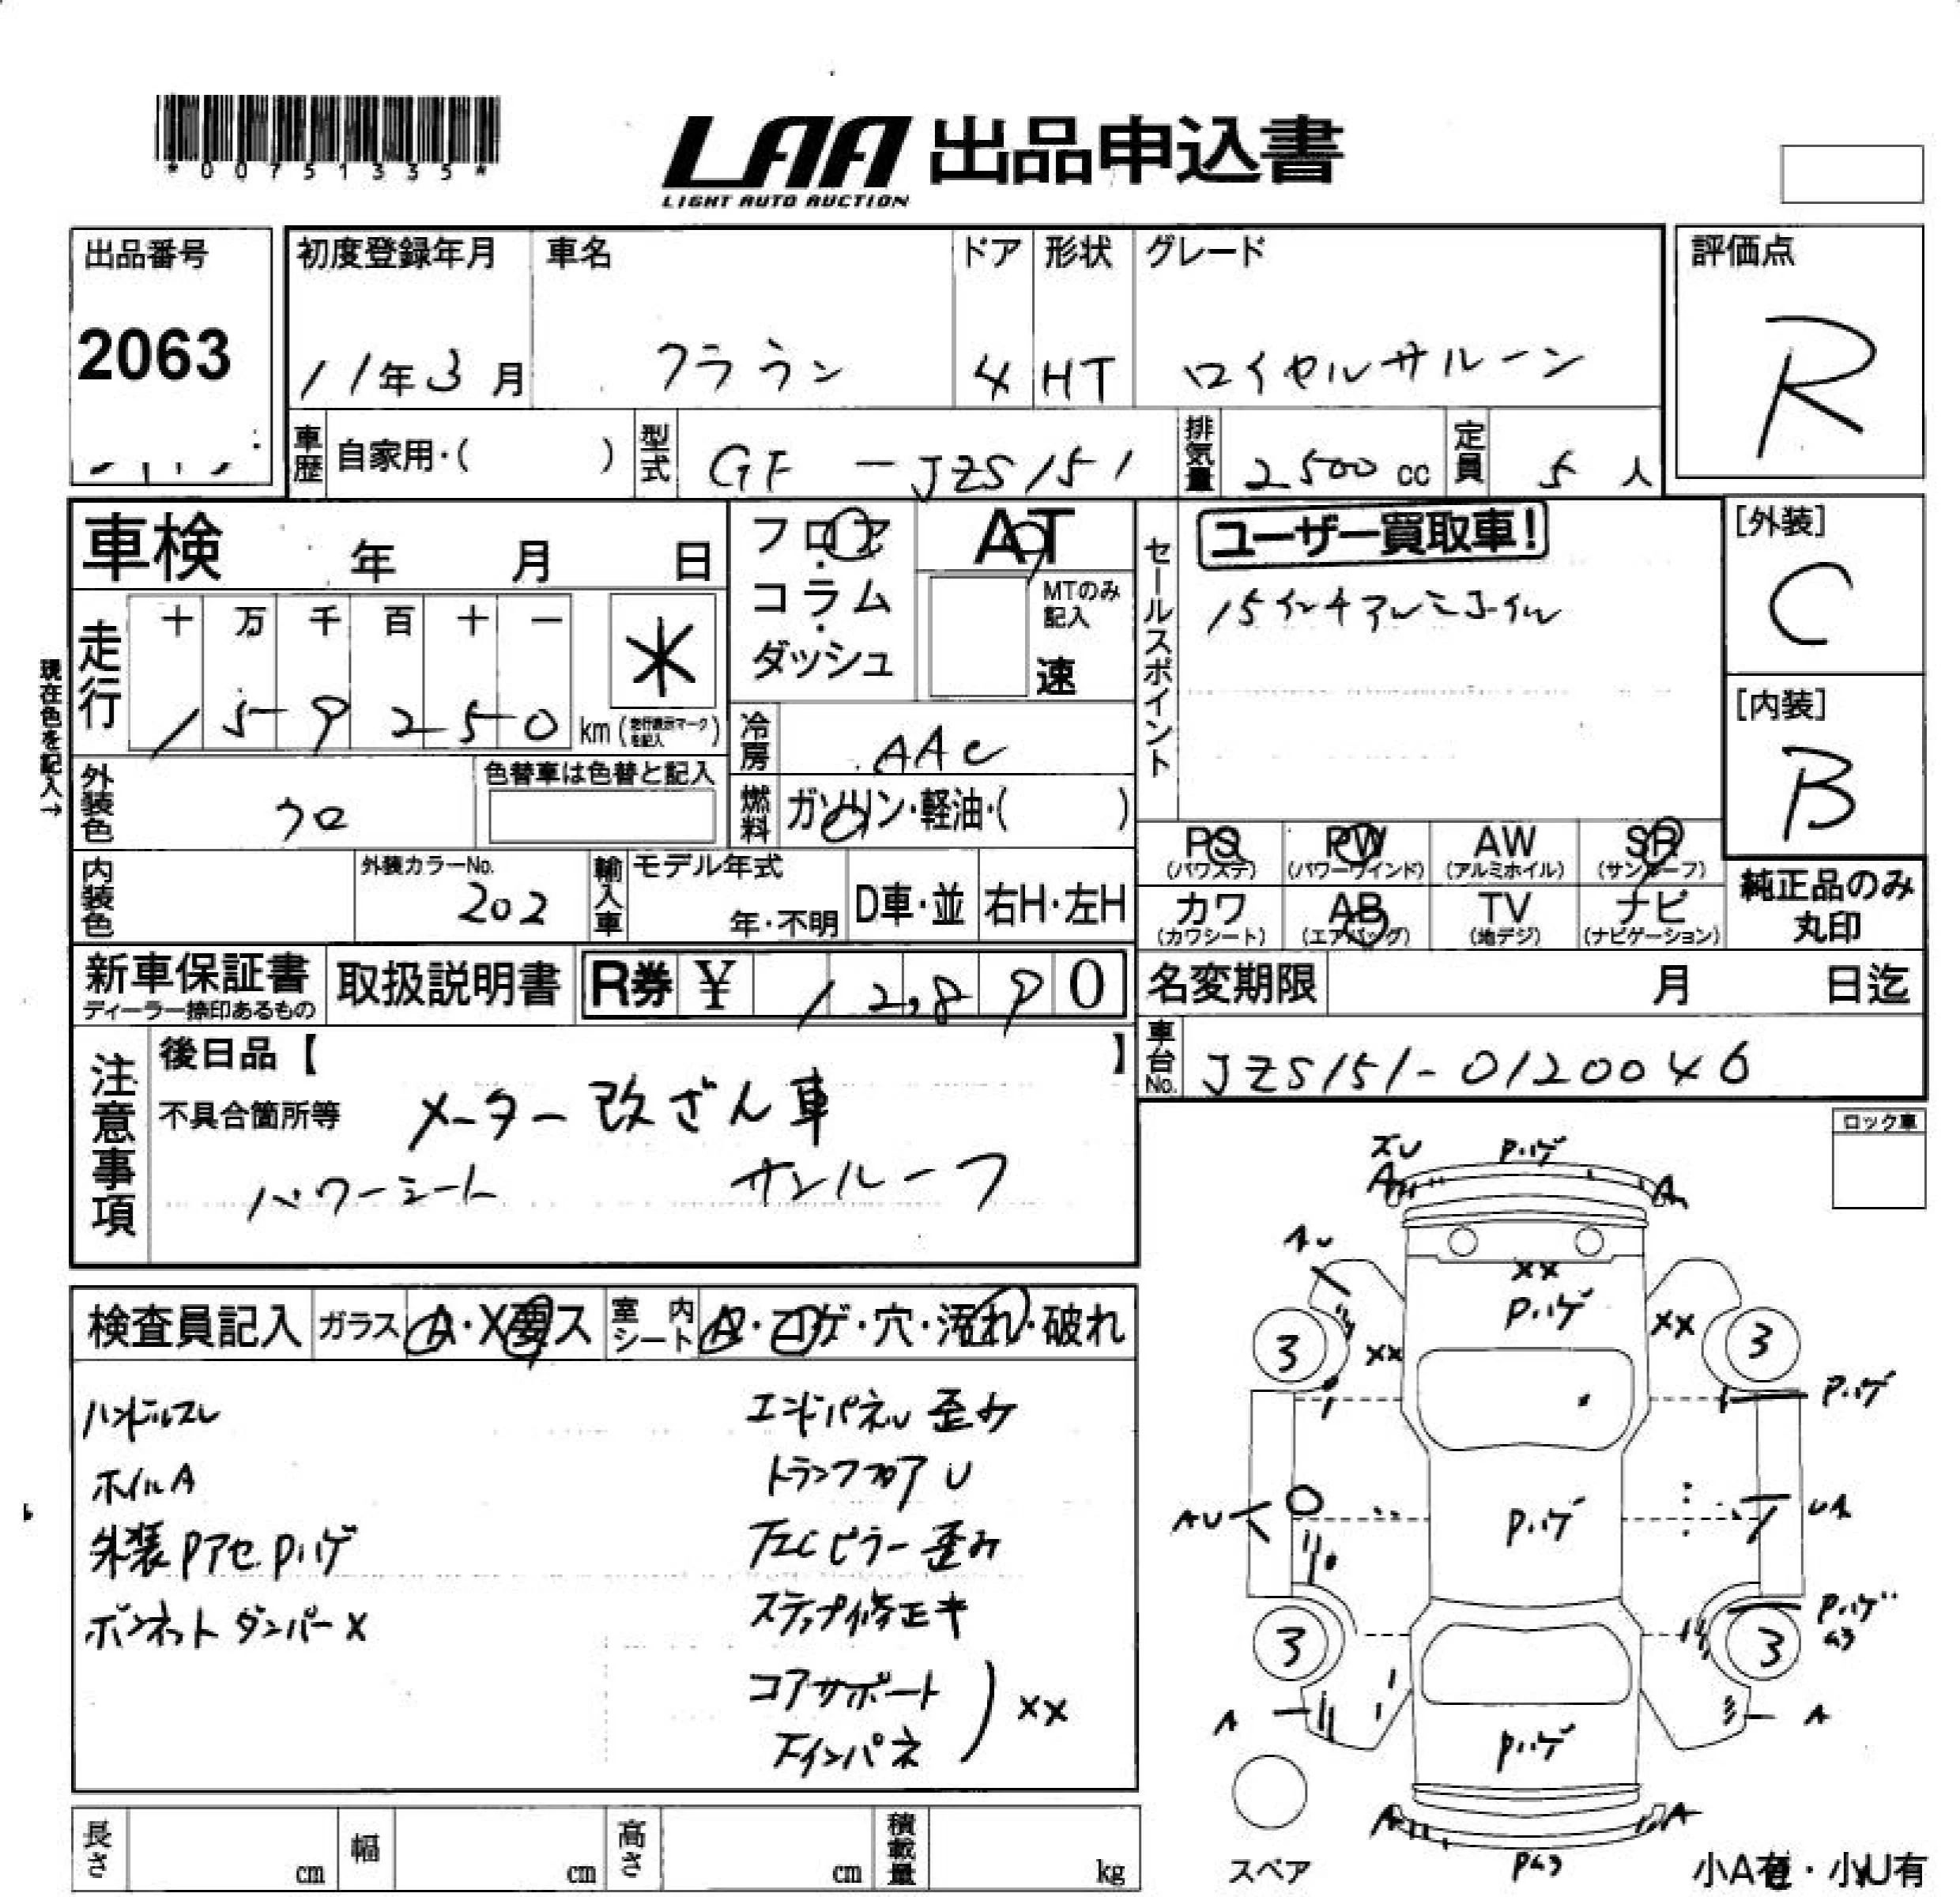 *00751335*
LAA 出品申込書
LIGHT AUTO AUCTION
出品番号 初度登録年月 車名 ドア 形状 グレード 評価点
2063 11年3月 クラウン 4 HT ロイヤルサルーン R
車歴 自家用・( ) 型式 GF-JZS151 排気量 2500cc 定員 5人
車検 年 月 日 フロア AT セールスポイント ユーザー買取車! [外装]
コラム MTのみ記入 15インチアルミホイル C
ダッシュ 速
現在色を記入→
走行 十 万 千 百 十 一 *
159250 km (走行表示マークを記入)
[内装]
B
冷房 AAC
外装色 クロ 色替車は色替と記入
燃料 ガソリン・軽油・( )
PS PW AW SR
(パワステ) (パワーウインド) (アルミホイル) (サンルーフ)
カワ AB TV ナビ
(カワシート) (エアバッグ) (地デジ) (ナビゲーション)
純正品のみ
丸印
内装色 外装カラーNo. 202 輸入車 モデル年式 年・不明 D車・並 右H・左H
新車保証書 取扱説明書 R券 ¥ 12,890 名変期限 月 日迄
ディーラー捺印あるもの
車台No. JZS151-0120046
注意事項 後日品【 】
不具合箇所等 メーター改ざん車
パワーシート サンルーフ
ロック車
検査員記入 ガラス A・X要・ス 室内シート A・コゲ・穴・汚れ・破れ
ハンドルスレ エンドパネル歪み
ホイルA トランクフロアU
外装Pアセ Pハゲ 左Cピラー歪み
ボンネットダンパーX ステップ修正キ
コアサポート
左インパネ
) XX
ズU Pハゲ
A A
AU
XX
Pハゲ
XX XX
3 3
Pハゲ
AU Pハゲ UA
Pハゲ
A3
3 3
A A
Pハゲ
A A
PA3
スペア
小A有・小U有
長さ cm 幅 cm 高さ cm 積載量 kg